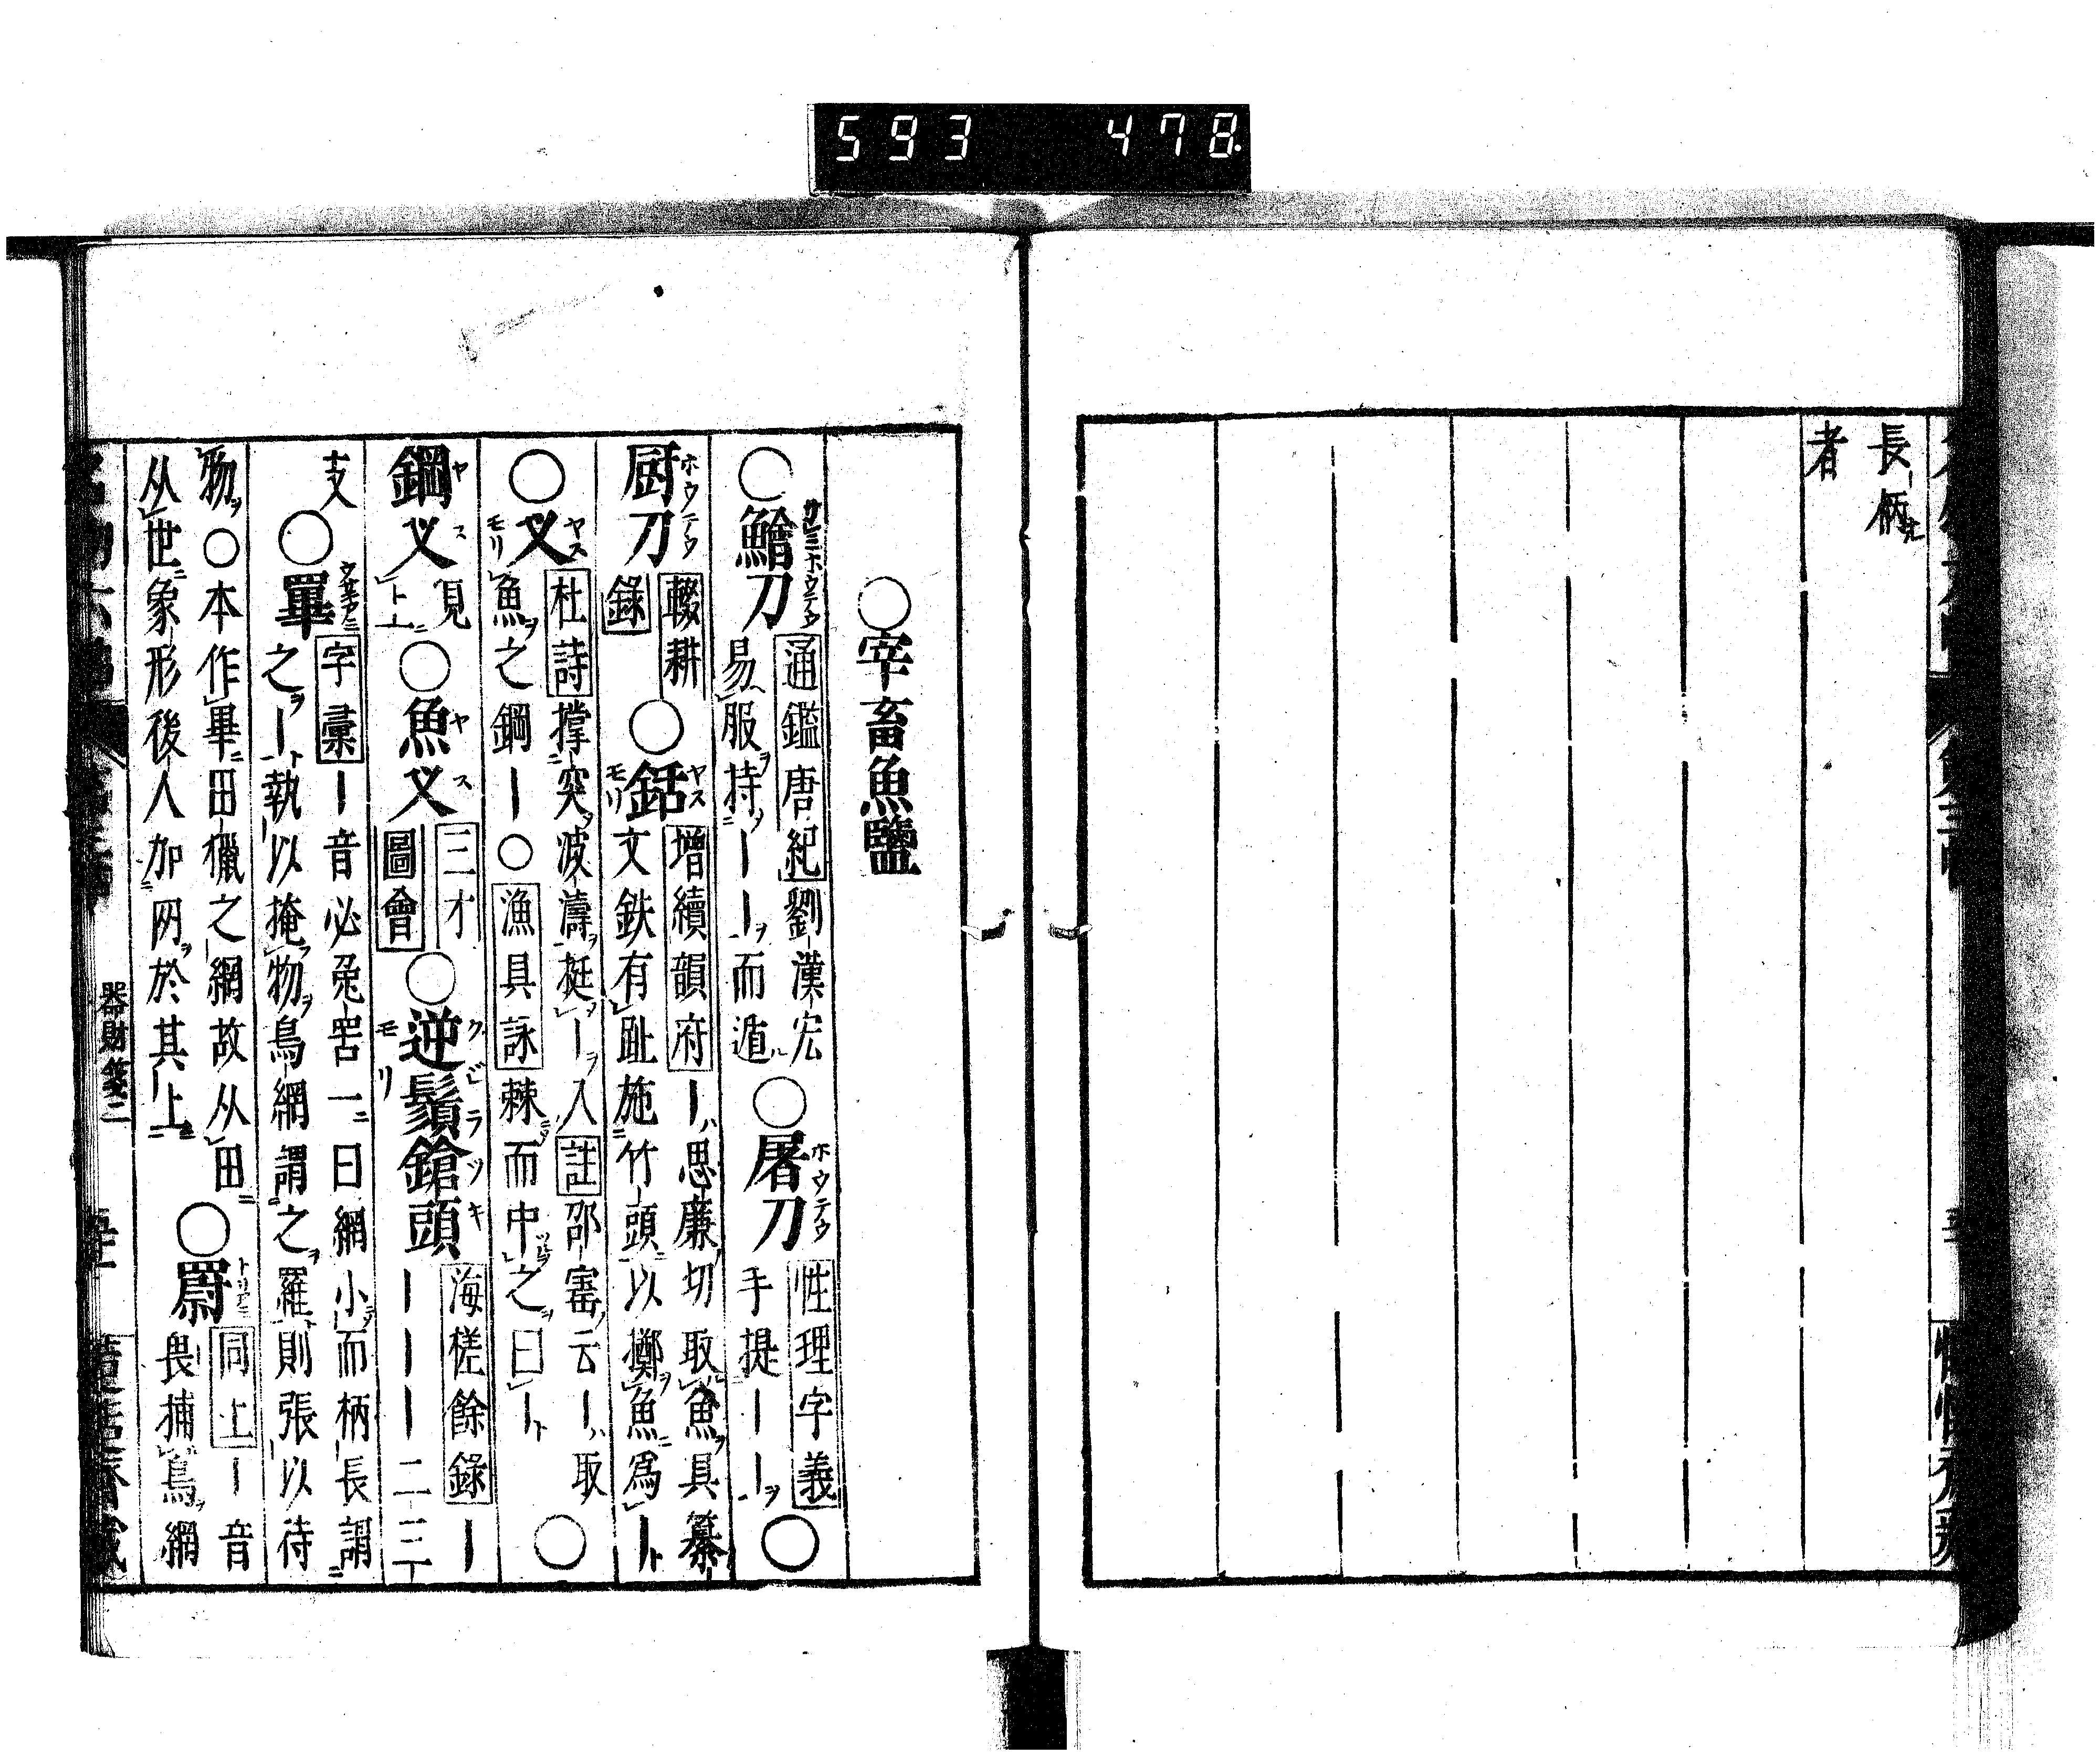 593 478
長柄
者
○宰畜魚鹽
○鱠刀 通鑑唐紀 劉漢宏
易服持――而遁 ○屠刀 性理字義
手提―― ○
厨刀 輟耕
錄 ○銛 增續韻府 ―思廉切取魚具纂
文鉄有趾施竹頭以擲魚爲―
○叉 杜詩 撑突波濤挺―入 註 邵寚云―取
魚之鋼―○漁具詠 棘而中之曰― ○
鋼叉 見
上 ○魚叉 三才
圖會 ○逆鬚鎗頭 海槎餘錄 ―
―――二三
支 ○罼 字彙 ―音必兎罟一曰網小而柄長謂
之―執以掩物鳥網謂之羅則張以待
物○本作畢田獵之網故从田
从世象形後人加网於其上 ○罻 同上 ―音
畏捕鳥網
器財箋二